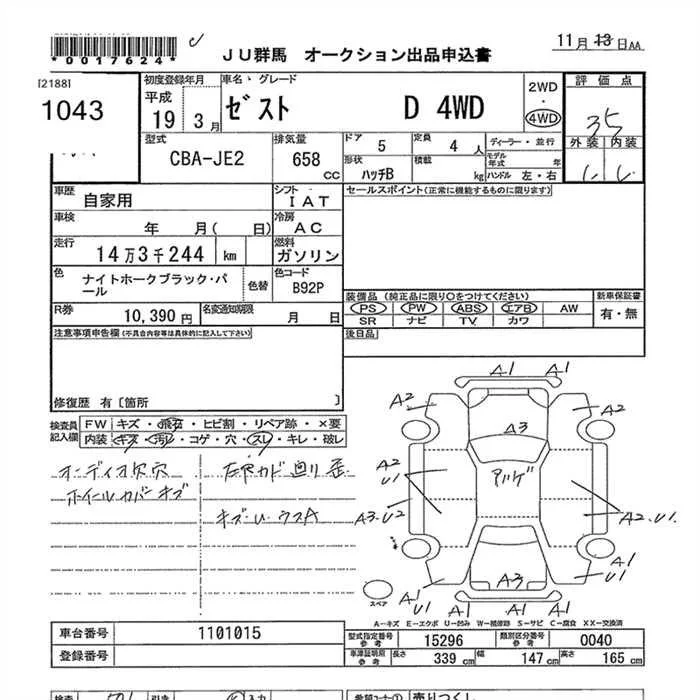 *0017624*
JU群馬 オークション出品申込書
11月13日AA
[2188]
1043
初度登録年月
平成
19 3月
車名・グレード
ゼスト D 4WD
2WD
・
4WD
評価点
35
外装 内装
型式
CBA-JE2
排気量
658 CC
ドア 5
定員 4 人
ディーラー・並行
形状 ハッチB
積載 kg
モデル年式 年
ハンドル 左・右
車歴 自家用
シフト IAT
セールスポイント(正常に機能するものに限ります)
車検 年 月( 日)
冷房 AC
走行 14万3千244 km
燃料 ガソリン
色 ナイトホークブラック・パール
色替
色コード B92P
R券 10,390円
名変通知期限 月 日
装備品 (純正品に限り○をつけてください)
新車保証書
PS PW ABS エアB AW
有・無
SR ナビ TV カワ
注意事項申告欄(不具合内容等は具体的に記入して下さい)
後日品
修復歴 有[箇所 ]
検査員記入欄
FW キズ・飛石・ヒビ割・リペア跡・×要
内装 キズ・汚レ・コゲ・穴・スレ・キレ・破レ
オーディオ欠穴
ホイールカバーキズ
キズ・U・ウスA
A1 A1
A2 A2
A3
A2
U1
A3・U2
A2・U1
A1
U1
A3
A1
U1
A1 U1 A1
スペア
A-キズ E-エクボ U-凹み W-補修跡 S-サビ C-腐食 XX-交換済
車台番号 1101015
登録番号
型式指定番号参考 15296
類別区分番号参考 0040
車庫証明用参考 長さ 339 cm 幅 147 cm 高さ 165 cm